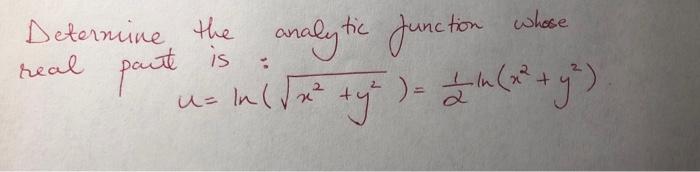 Determine the analytic function whose
real part is :
u = ln(√x² + y²) = 1/2 ln(x² + y²)